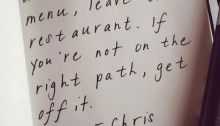 menu, leave
restaurant. If
you're not on the
right path, get
off it.
- Chris